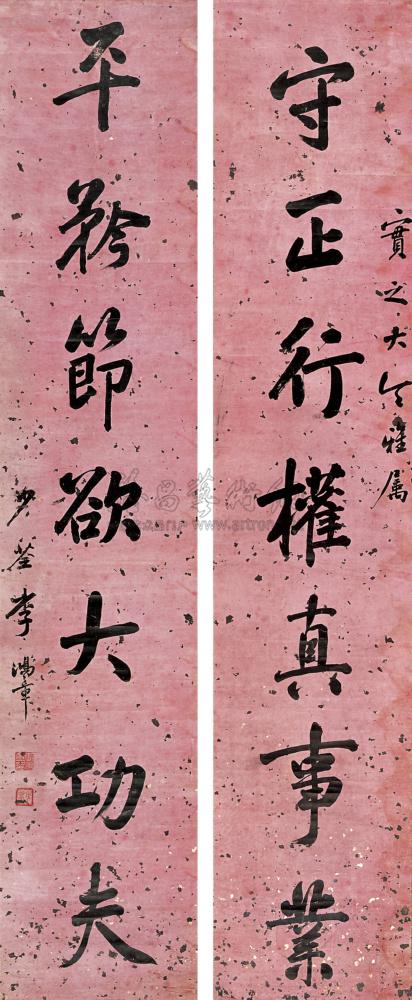 實之大令雅属
守正行權真事業
平矜節欲大功夫
少荃李鴻章